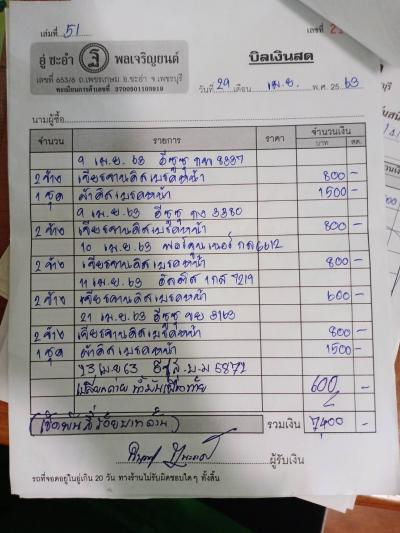 เล่มที่ 51 เลขที่
อู่ ชะอำ พลเจริญยนต์ บิลเงินสด
เลขที่ 653/6 ถ.เพชรเกษม อ.ชะอำ จ.เพชรบุรี
ทะเบียนการค้าเลขที่ 3700501103919
วันที่ 29 เดือน เม.ย. พ.ศ. 2563
นามผู้ซื้อ
จำนวน รายการ ราคา จำนวนเงิน
บาท สต.
9 เม.ย. 63 อีซูซุ กท 8337
2 ข้าง เจียรจานดิสเบรคหน้า 800 -
1 ชุด ผ้าดิสเบรคหน้า 1500 -
9 เม.ย. 63 อีซูซุ กง 3380
2 ข้าง เจียรจานดิสเบรคหน้า 800 -
10 เม.ย. 63 ฟอร์จูนเนอร์ กล 6612
2 ข้าง เจียรจานดิสเบรคหน้า 800 -
11 เม.ย. 63 อัลติส 1กส 7219
2 ข้าง เจียรจานดิสเบรคหน้า 600 -
21 เม.ย. 63 อีซูซุ ขย 3163
2 ข้าง เจียรจานดิสเบรคหน้า 800 -
1 ชุด ผ้าดิสเบรคหน้า 1500 -
23 เม.ย 63 อีซูซุ บ-ม 5872
600 -
(เจ็ดพันสี่ร้อยบาทถ้วน) รวมเงิน 7,400 -
ผู้รับเงิน
รถที่จอดอยู่ในอู่เกิน 20 วัน ทางร้านไม่รับผิดชอบใดๆ ทั้งสิ้น